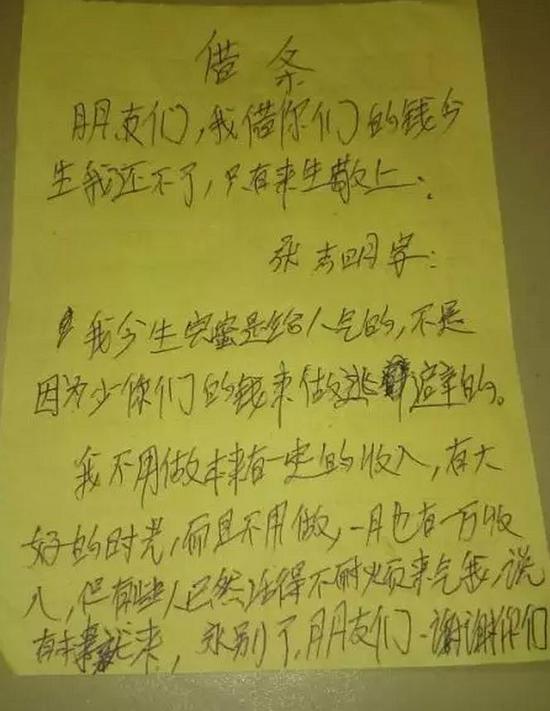 借条
朋友们,我借你们的钱今
生我还不了,只有来生敬上:
张志明字:
我今生完蛋是给人气的,不是
因为少你们的钱来做逃避的。
我不用做本来有一定的收入,有大
好的时光,而且不用做,一月也有一万收
入,但有些人已然活得不耐烦而来气我,说
有本事就来,永别了,朋友们-谢谢你们